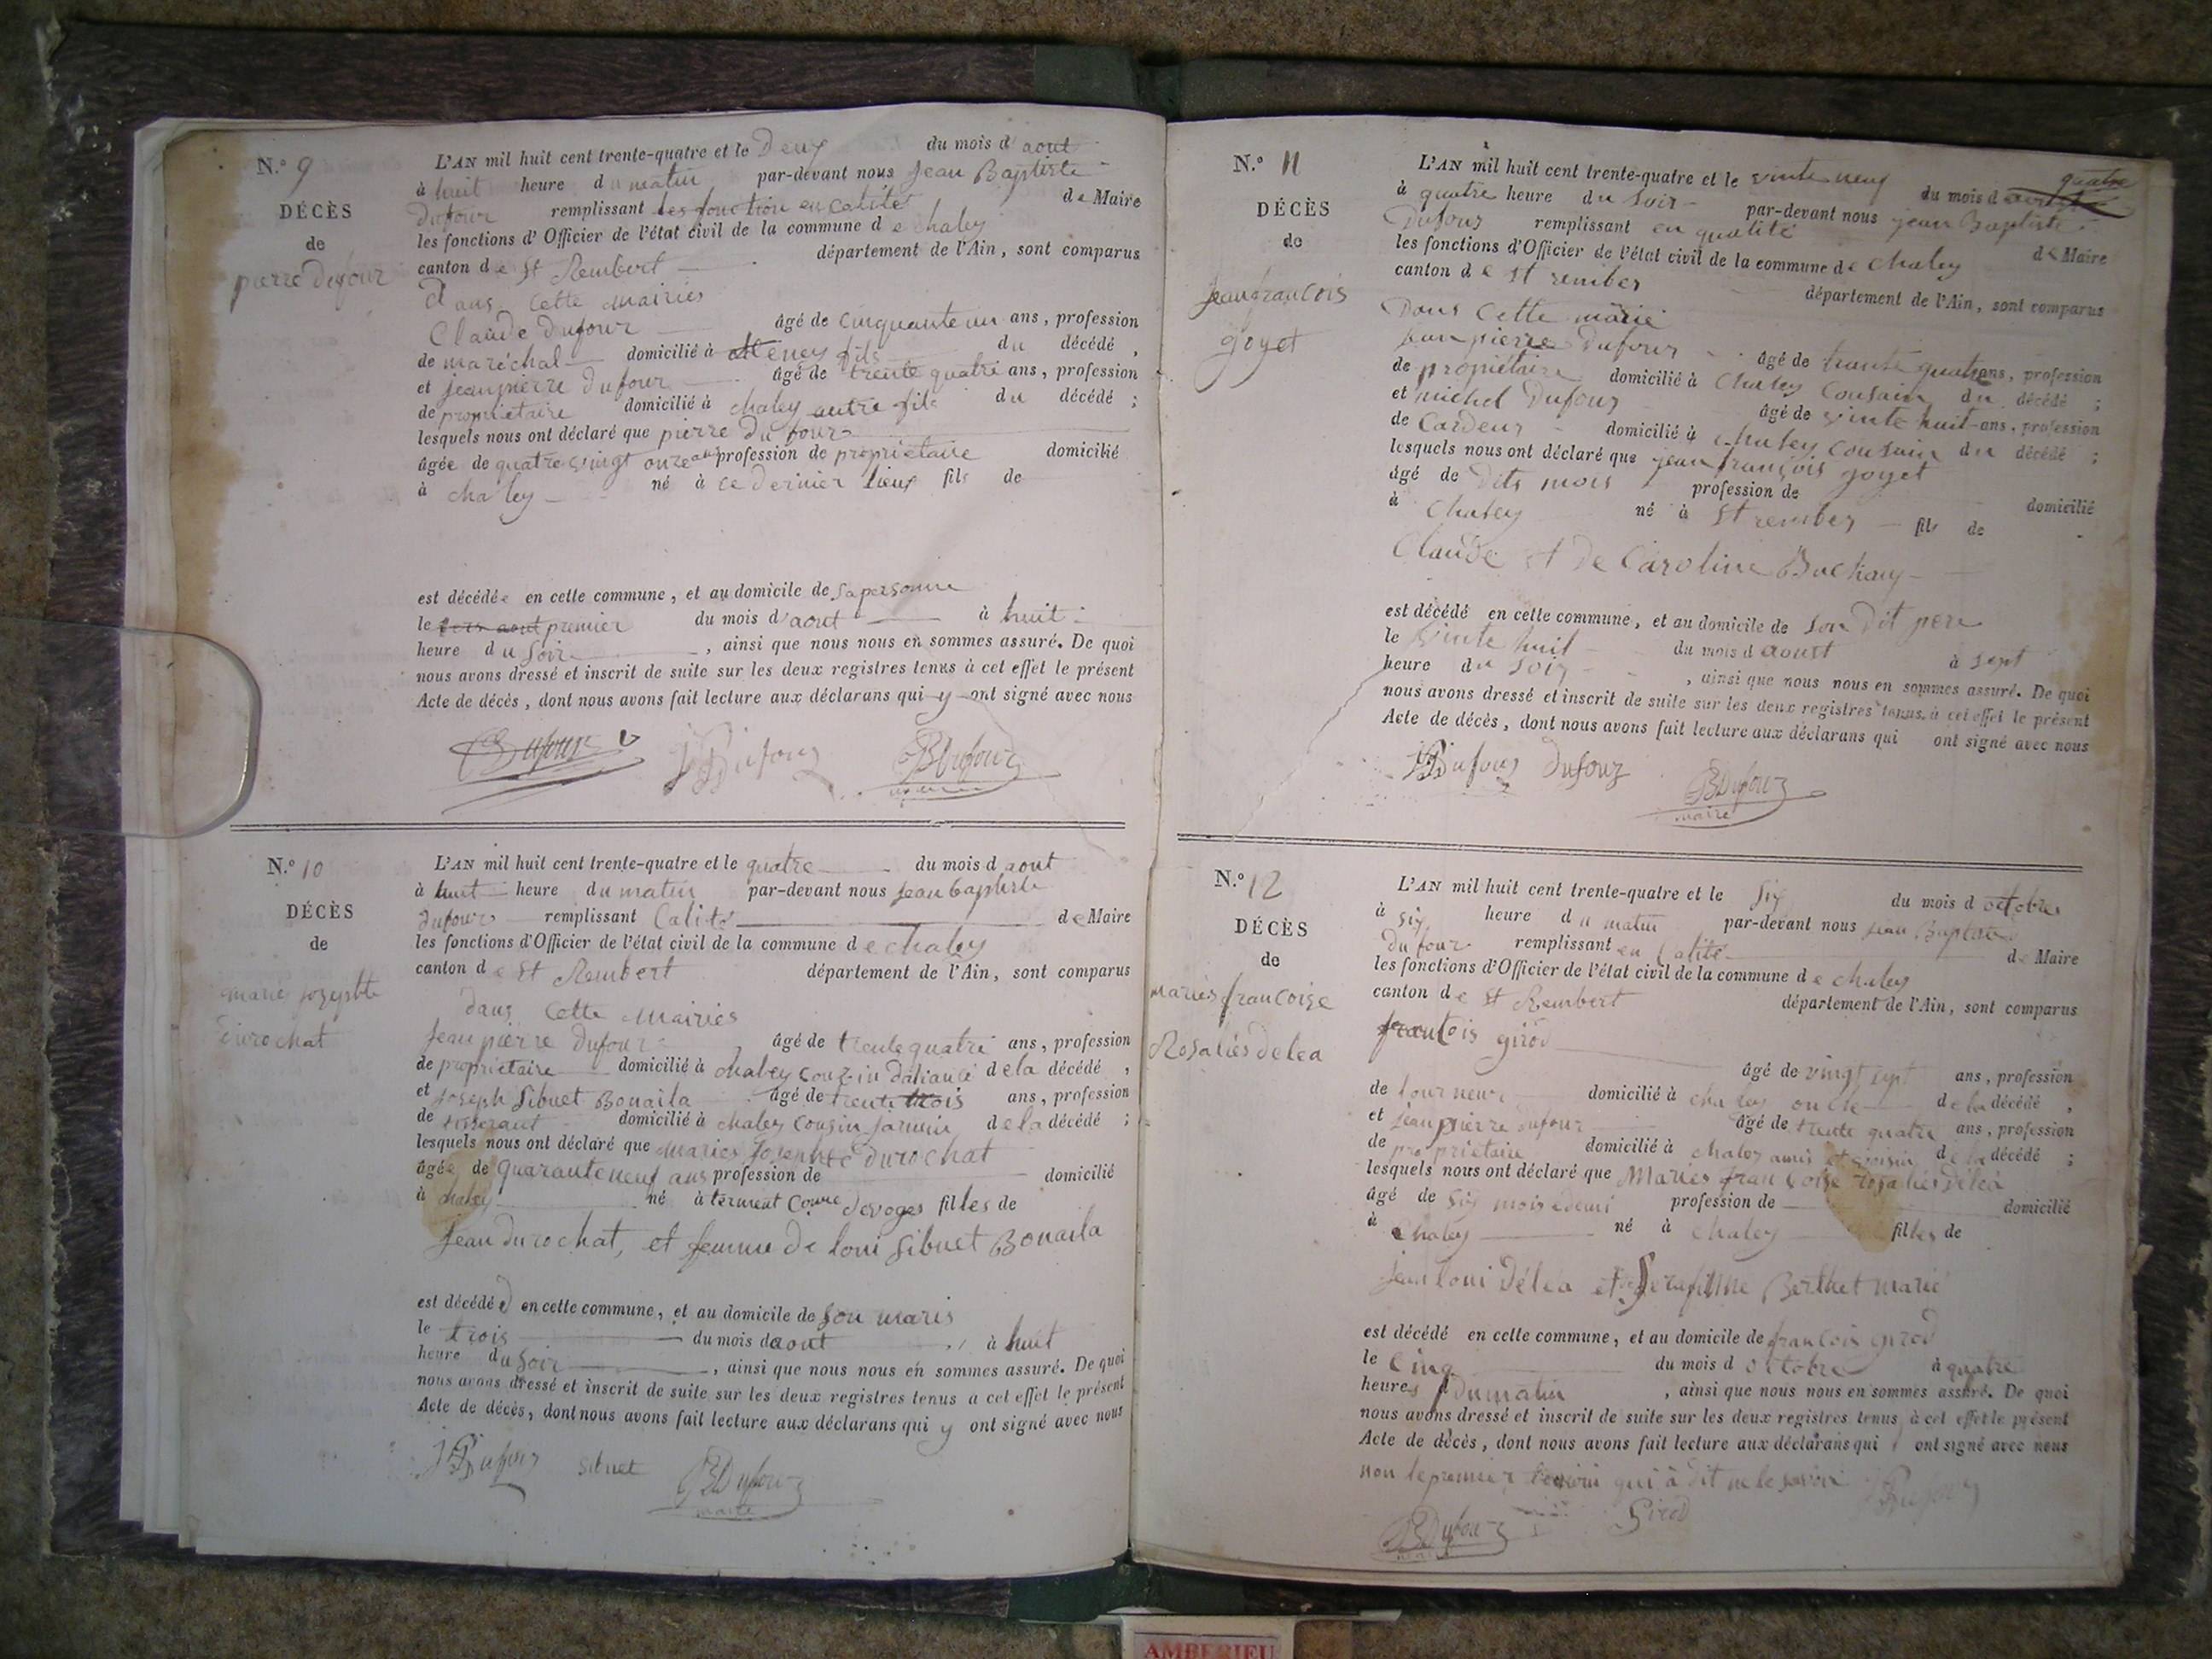 N.° 9
DÉCÈS
de
pierre dufour
L'AN mil huit cent trente-quatre et le Deux du mois d'aout
à huit heure du matin par-devant nous Jean Baptiste
Dufour remplissant les fonction en calité de Maire
les fonctions d'Officier de l'état civil de la commune de chaley
canton de St Rembert département de l'Ain, sont comparus
Dans Cette Mairies
Claude Dufour âgé de cinquante un ans, profession
de maréchal domicilié à fils du décédé,
et jean pierre Dufour âgé de trente quatre ans, profession
de propriétaire domicilié à chaley autre fils du décédé;
lesquels nous ont déclaré que pierre Dufour
âgée de quatre vingt onze ans profession de propriétaire domicilié
à chaley né à ce dernier lieux fils de
est décédée en cette commune, et au domicile de sa personne
le premier du mois d'aout à huit
heure du soire, ainsi que nous nous en sommes assuré. De quoi
nous avons dressé et inscrit de suite sur les deux registres tenus à cet effet le présent
Acte de décès, dont nous avons fait lecture aux déclarans qui y ont signé avec nous
Dufour JPDufour JBDufour
N.° 10
DÉCÈS
de
marie josephte
Durochat
L'AN mil huit cent trente-quatre et le quatre du mois d aout
à huit heure du matin par-devant nous Jean baptiste
Dufour remplissant Calité de Maire
les fonctions d'Officier de l'état civil de la commune de chaley
canton de St Rembert département de l'Ain, sont comparus
dans Cette Mairies
Jean pierre Dufour âgé de trente quatre ans, profession
de propriétaire domicilié à chaley couzin daliance de la décédé,
et joseph Sibuet Bonaila âgé de trente trois ans, profession
de tisserant domicilié à chaley Cousin jarmin de la décédé;
lesquels nous ont déclaré que maries Josephte Durochat
âgée de quarante neuf ans profession de domicilié
à chaley né à terment devoges filles de
Jean durochat, et femme de loui Sibuet Bonaila
est décédé en cette commune, et au domicile de Son maris
le trois du mois daout à huit
heure du soir, ainsi que nous nous en sommes assuré. De quoi
nous avons dressé et inscrit de suite sur les deux registres tenus à cet effet le présent
Acte de décès, dont nous avons fait lecture aux déclarans qui y ont signé avec nous
JPDufour Sibuet JBDufour
maire
N.° 11
DÉCÈS
de
Jean francois
goyet
L'AN mil huit cent trente-quatre et le vinte neuf du mois d
à quatre heure du soir par-devant nous jean Baptiste
Dufour remplissant en qualité de Maire
les fonctions d'Officier de l'état civil de la commune de Chaley
canton de st rember département de l'Ain, sont comparus
Dans Cette mairie
Jean pierre Dufour âgé de trante quatre ans, profession
de propriétaire domicilié à Chaley Cousain du décédé;
et michel Dufour âgé de vinte huit ans, profession
de Cardeur domicilié à chaley Cousain du décédé;
lesquels nous ont déclaré que jean françois goyet
âgé de dits mois profession de domicilié
à Chaley né à St rember fils de
Claude et de Caroline
est décédé en cette commune, et au domicile de son dit pere
le vinte huit du mois d aoust à sept
heure du soir, ainsi que nous nous en sommes assuré. De quoi
nous avons dressé et inscrit de suite sur les deux registres tenus à cet effet le présent
Acte de décès, dont nous avons fait lecture aux déclarans qui ont signé avec nous
JPDufour Dufour JBDufour
maire
N.° 12
DÉCÈS
de
maries francoise
Rosalies delea
L'AN mil huit cent trente-quatre et le six du mois d octobre
à six heure du matin par-devant nous jean Baptiste
Dufour remplissant en Calité de Maire
les fonctions d'Officier de l'état civil de la commune de chaley
canton de St Rembert département de l'Ain, sont comparus
francois girod
âgé de vingt sept ans, profession
de tourneur domicilié à chaley oncle de la décédé,
et jean pierre dufour âgé de trente quatre ans, profession
de propriétaire domicilié à chaley amis et voisin de la décédé;
lesquels nous ont déclaré que Maries françoise rosalies delea
âgé de six mois edemi profession de domicilié
à Chaley né à Chaley filles de
Jean loui Déléa et de Serafinne Berthet marié
est décédé en cette commune, et au domicile de francois girod
le cinq du mois d octobre à quatre
heures dumatin, ainsi que nous nous en sommes assuré. De quoi
nous avons dressé et inscrit de suite sur les deux registres tenus à cet effet le présent
Acte de décès, dont nous avons fait lecture aux déclarans qui ont signé avec nous
non le premier temoin qui à dit ne le savoir
JBDufour Girod
AMBERIEU